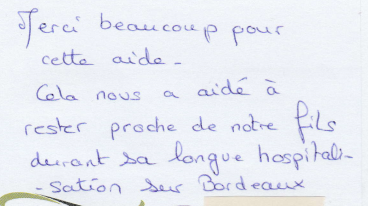 Merci beaucoup pour
cette aide.
Cela nous a aidé à
rester proche de notre fils
durant sa longue hospitali-
-sation sur Bordeaux